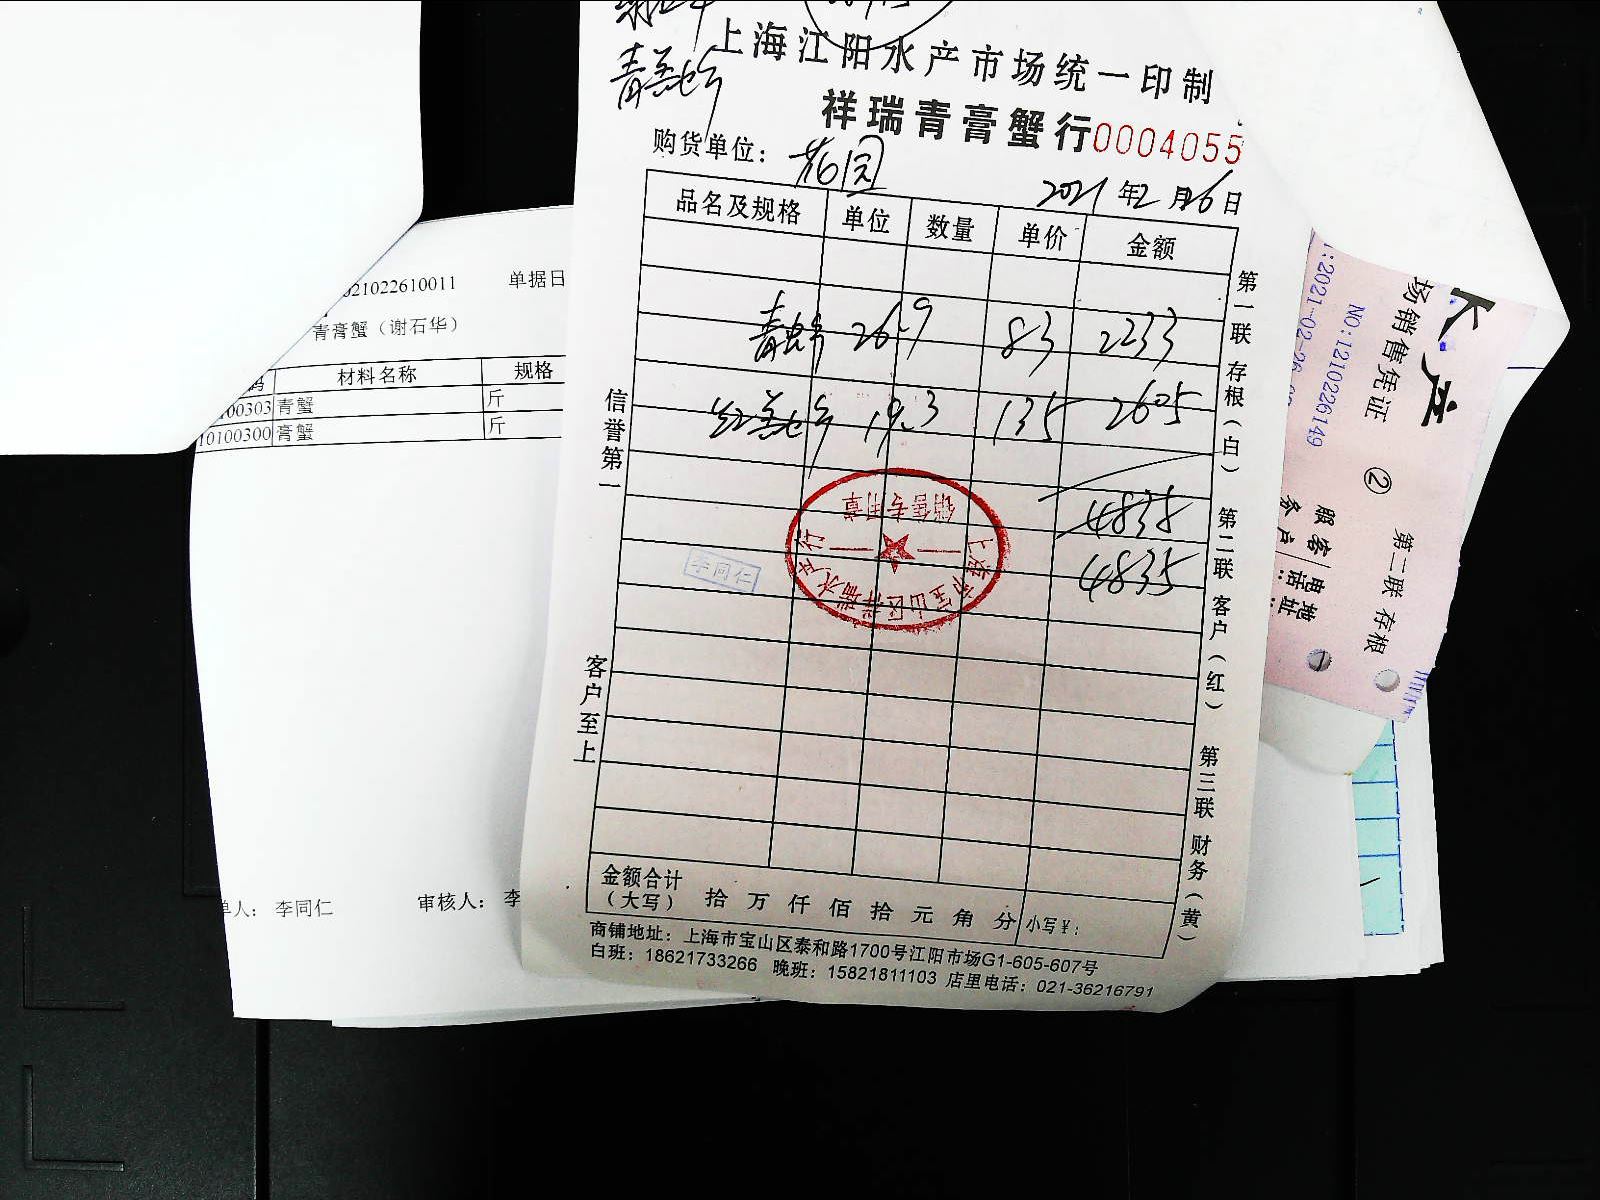 上海江阳水产市场统一印制
祥瑞青膏蟹行 0004055
购货单位： 花园
2021 年 2 月 26 日
品名及规格 单位 数量 单价 金额
青蟹 26.9 83 2233
红膏蟹 19.3 135 2605
4835
4835
销售专用章
上海市宝山区祥瑞水产行
李同仁
信誉第一
客户至上
第一联 存根（白） 第二联 客户（红） 第三联 财务（黄）
金额合计（大写） 拾 万 仟 佰 拾 元 角 分 小写￥：
商铺地址：上海市宝山区泰和路1700号江阳市场G1-605-607号
白班：18621733266 晚班：15821811103 店里电话：021-36216791
021022610011 单据日
青膏蟹（谢石华）
码 材料名称 规格
100303 青蟹 斤
10100300 膏蟹 斤
单人： 李同仁 审核人： 李
水产
场销售凭证 ② 第二联 存根
NO:1210226149
:2021-02-26
服务
客户
电话：
地址：